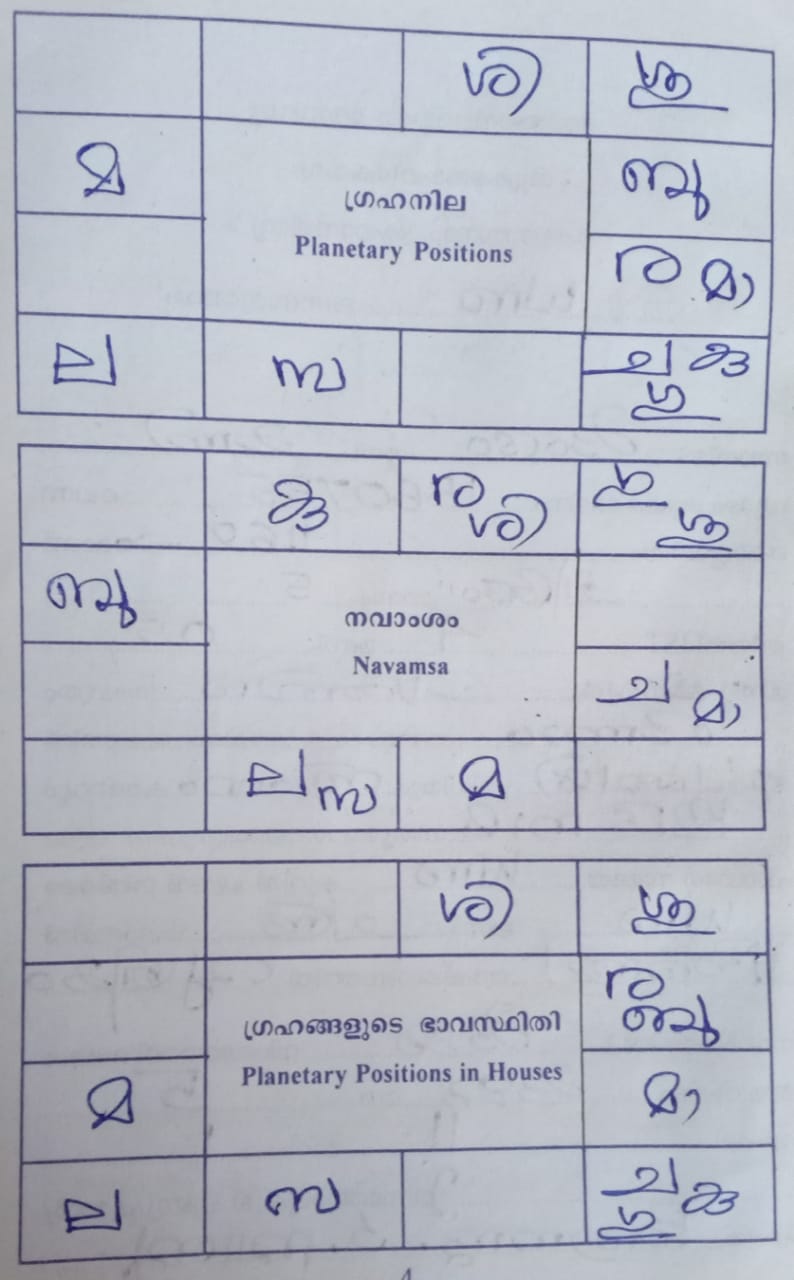 ശി ശു
മ ബു
ഗ്രഹനില
Planetary Positions
ര മാ
ല സ ച കു
ഗു
കു ര ശി ഗു ശു
ബു
നവാംശം
Navamsa
ച മാ
ല സ മ
ശി ശു
ര
ബു
ഗ്രഹങ്ങളുടെ ഭാവസ്ഥിതി
Planetary Positions in Houses
മ മാ
ല സ ച കു
ഗു